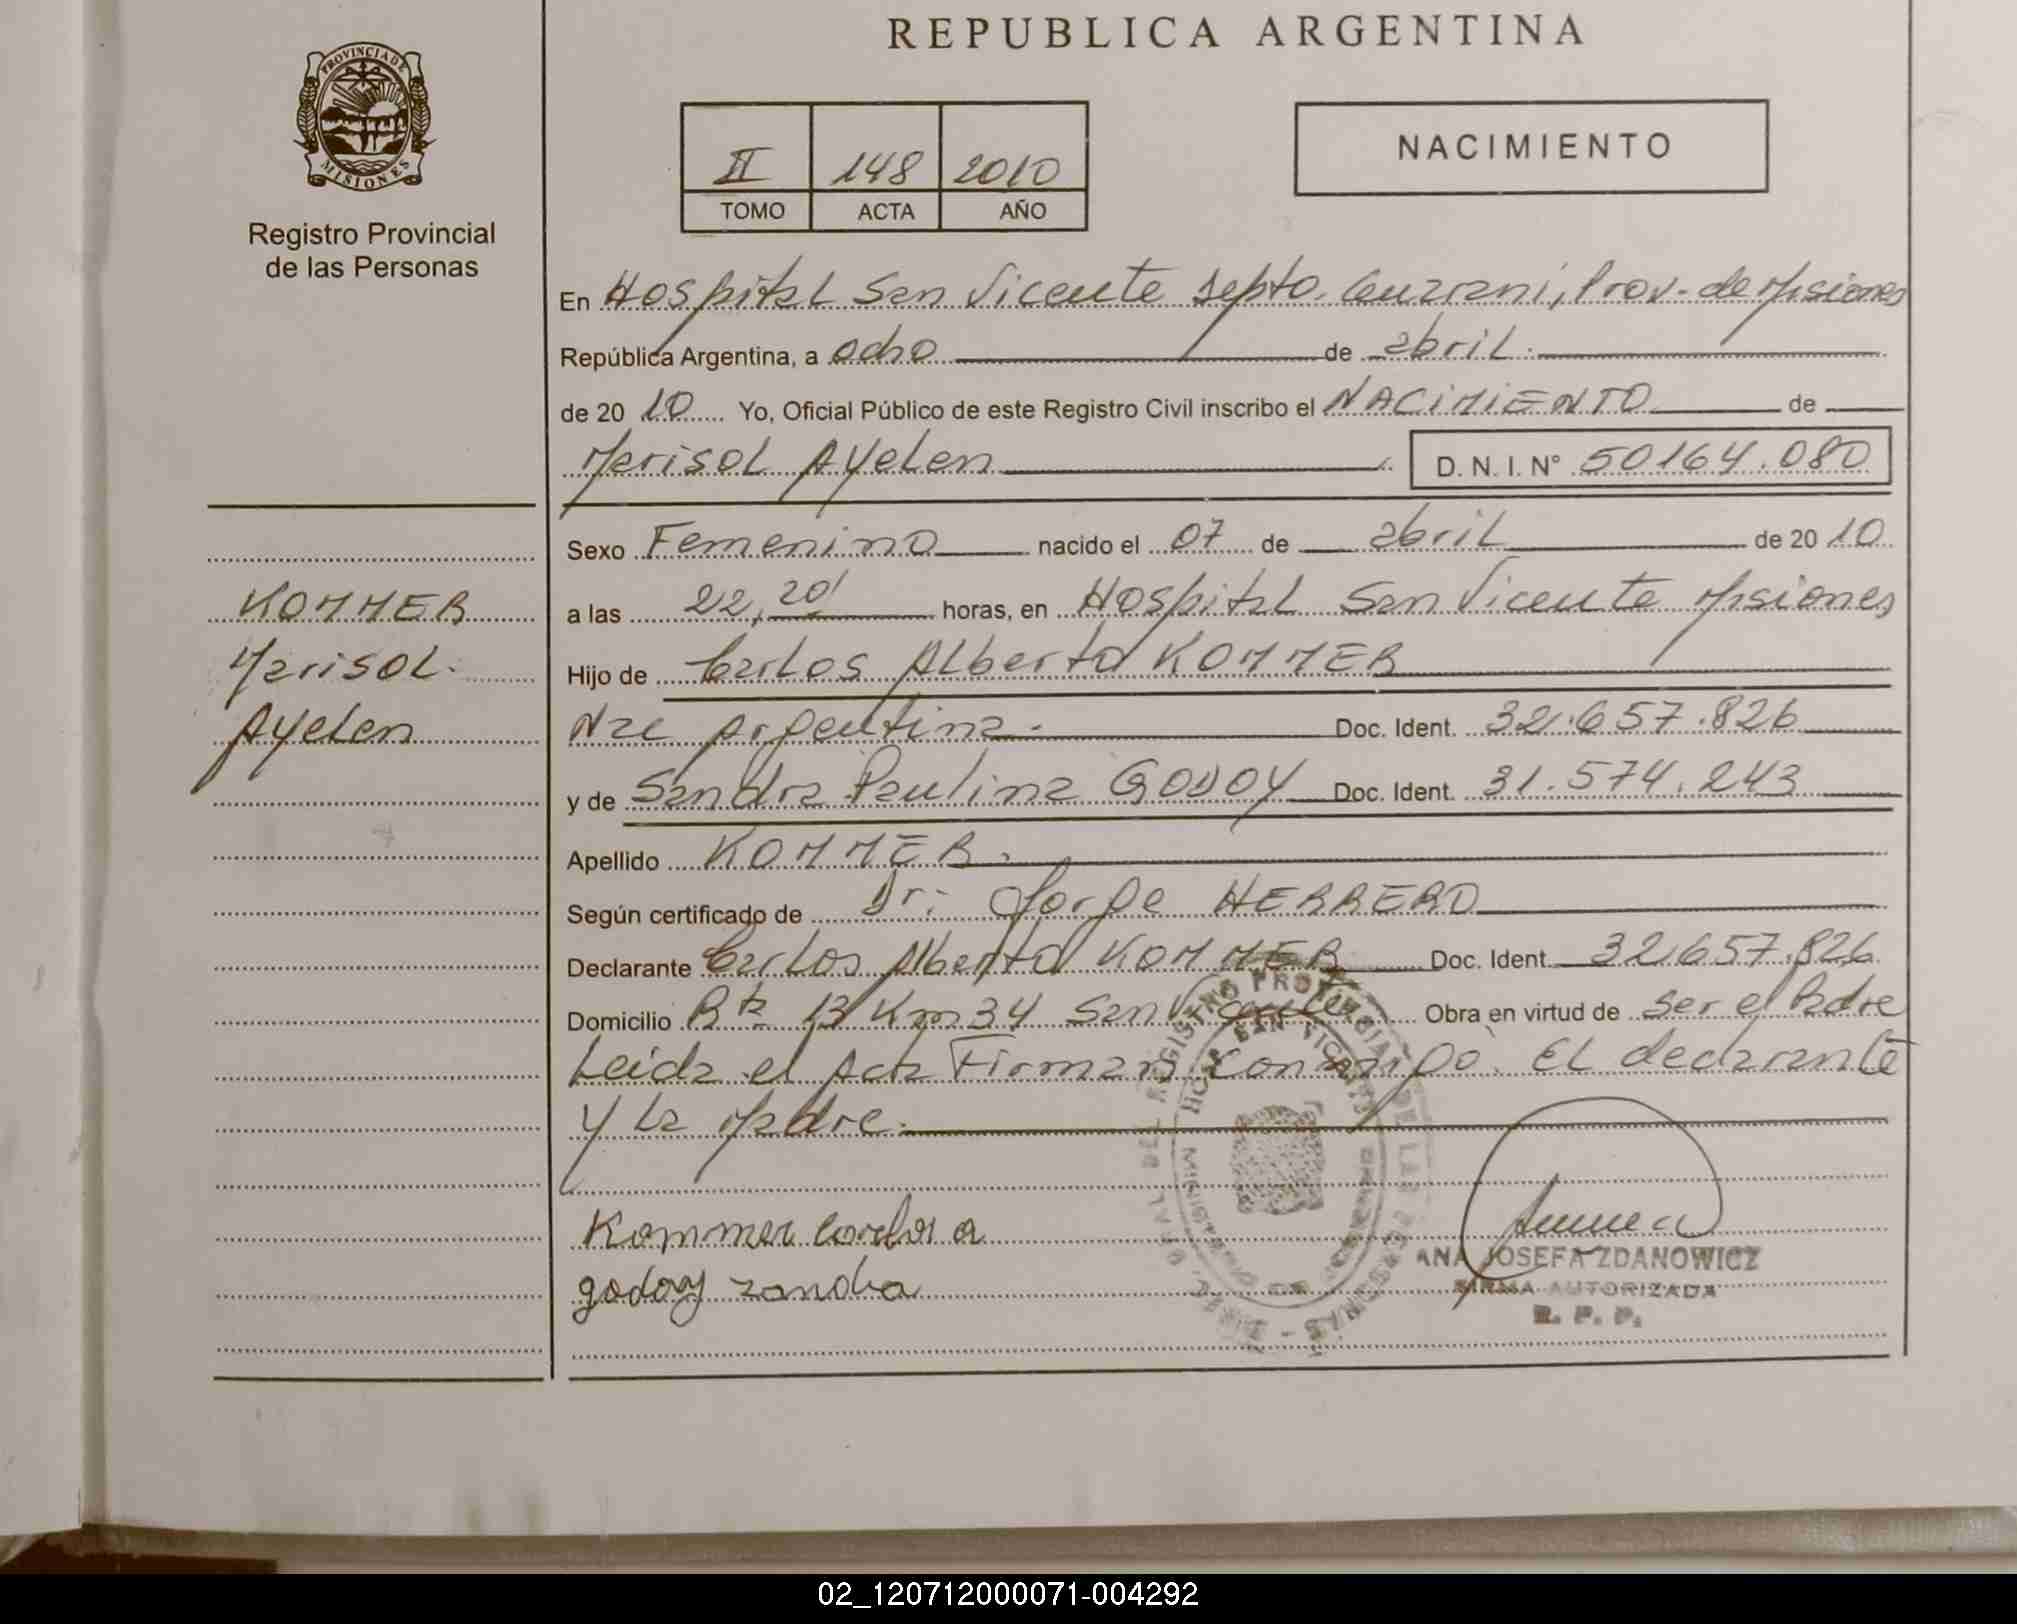 REPUBLICA ARGENTINA
PROVINCIA DE
MISIONES
Registro Provincial
de las Personas
II 148 2010
TOMO ACTA AÑO
NACIMIENTO
En Hospital San Vicente Depto. Guarani, Prov. de Misiones
República Argentina, a ocho de abril
de 20 10 Yo, Oficial Público de este Registro Civil inscribo el NACIMIENTO de
Marisol Ayelen D. N. I. Nº 50164.080
Sexo Femenino nacido el 07 de abril de 20 10
a las 22,20 horas, en Hospital San Vicente Misiones
Hijo de Carlos Alberto KOMMER
Nac Argentina. Doc. Ident. 32.657.826
y de Sandra Paulina GODOY Doc. Ident. 31.574.243
Apellido KOMMER.
Según certificado de Dr: Jorge HERRERO
Declarante Carlos Alberto KOMMER Doc. Ident. 32.657.826
Domicilio Rta 13 Km 34 San Vicente Obra en virtud de ser el Padre
Leida el Acta Firman conmigo El declarante
y la Madre.
KOMMER
Marisol.
Ayelen
Kommer Carlos a
godoy zandra
ANA JOSEFA ZDANOWICZ
FIRMA AUTORIZADA
R. P. P.
02_120712000071-004292